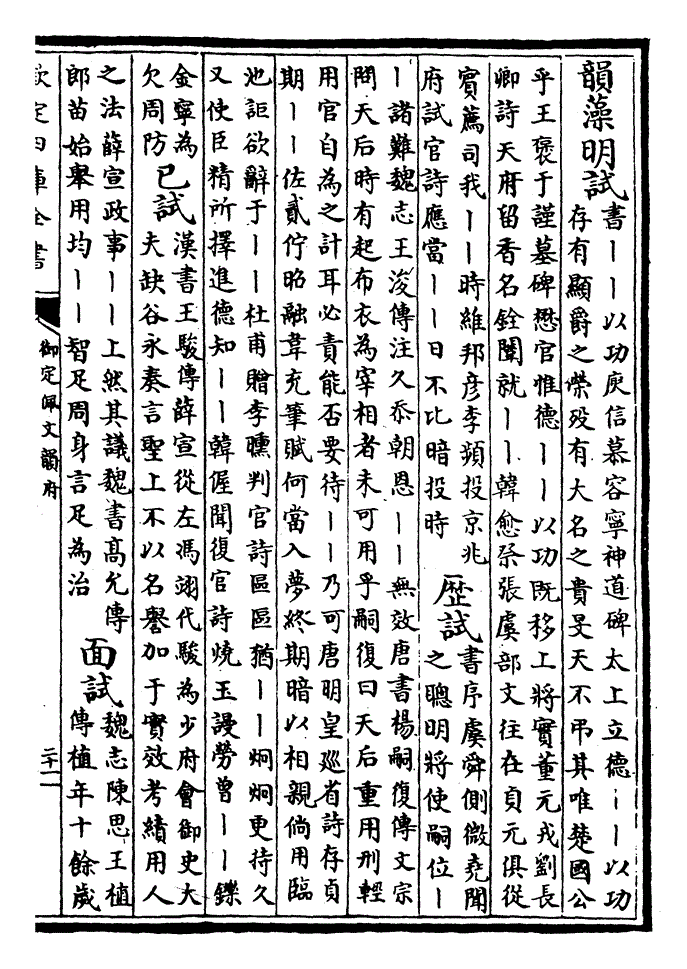 韻藻明試
書丨丨以功庾信慕容寧神道碑太上立德丨丨以功
存有顯爵之榮殁有大名之貴旻天不弔其唯楚國公
乎王褒于謹墓碑懋官惟德丨丨以功既移上將實董元戎劉長
卿詩天府留香名銓闈就丨丨韓愈祭張虞部文往在貞元俱從
賓薦司我丨丨時維邦彦李蘋投京兆
府試官詩應當丨丨日不比暗投時
歷試
書序虞舜側微堯聞
之聰明將使嗣位丨
丨諸難魏志王浚傳注久忝朝恩丨丨無效唐書楊嗣復傳文宗
問天后時有起布衣為宰相者未可用乎嗣復曰天后重用刑輕
用官自為之計耳必責能否要待丨丨乃可唐明皇巡省詩存貞
期丨丨佐貳佇昭融韋充筆賦何當入夢終期暗以相親倘用臨
池詎欲辭于丨丨杜甫贈李曛判官詩區區猶丨丨炯炯更持久
又使臣精所擇進德知丨丨韓偓聞復官詩燒玉謾勞曾丨丨鑠
金寧為
欠周防
已試
漢書王駿傳薛宣從左馮翊代駿為少府會御史大
夫缺谷永奏言聖上不以名譽加于實效考績用人
之法薛宣政事丨丨上然其議魏書髙允傳
郎苗始舉用均丨丨智足周身言足為治
面試
魏志陳思王植
傳植年十餘歲
欽定四庫全書
御定佩文韻府
二十一